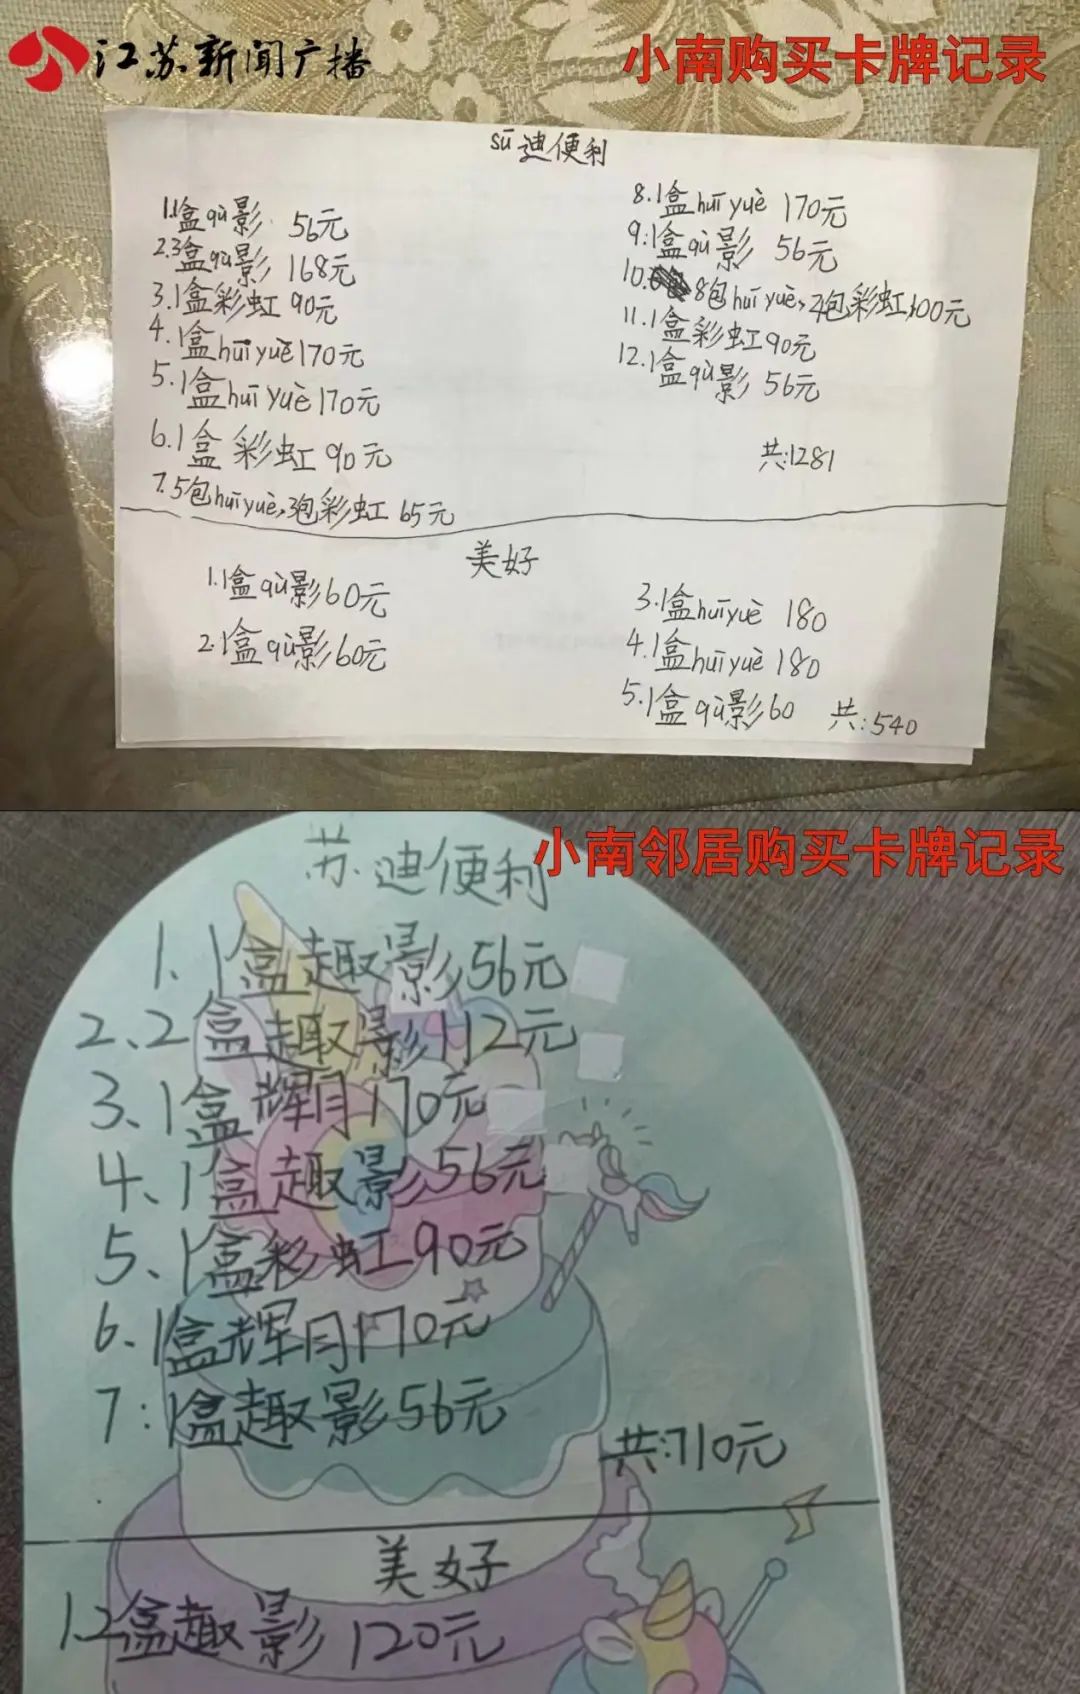 江苏新闻广播
小南购买卡牌记录
sū迪便利
1.1盒qù影 56元
2.3盒qù影 168元
3.1盒彩虹 90元
4.1盒huī yuè170元
5.1盒huī yuè170元
6.1盒彩虹90元
7.5包huīyuè,3包彩虹 65元
8.1盒huī yuè 170元
9:1盒qù影 56元
10.8包huī yuè,2包彩虹100元
11.1盒彩虹90元
12.1盒qù影 56元
共:1281
美好
1.1盒qù影60元
2.1盒qù影60元
3.1盒huīyuè 180
4.1盒huīyuè 180
5.1盒qù影60
共:540
小南邻居购买卡牌记录
苏迪便利
1.1盒趣影56元
2、2盒趣影112元
3、1盒辉月170元
4、1盒趣影56元
5、1盒彩虹90元
6.1盒辉月170元
7:1盒趣影56元
共:710元
美好
1.2盒趣影120元